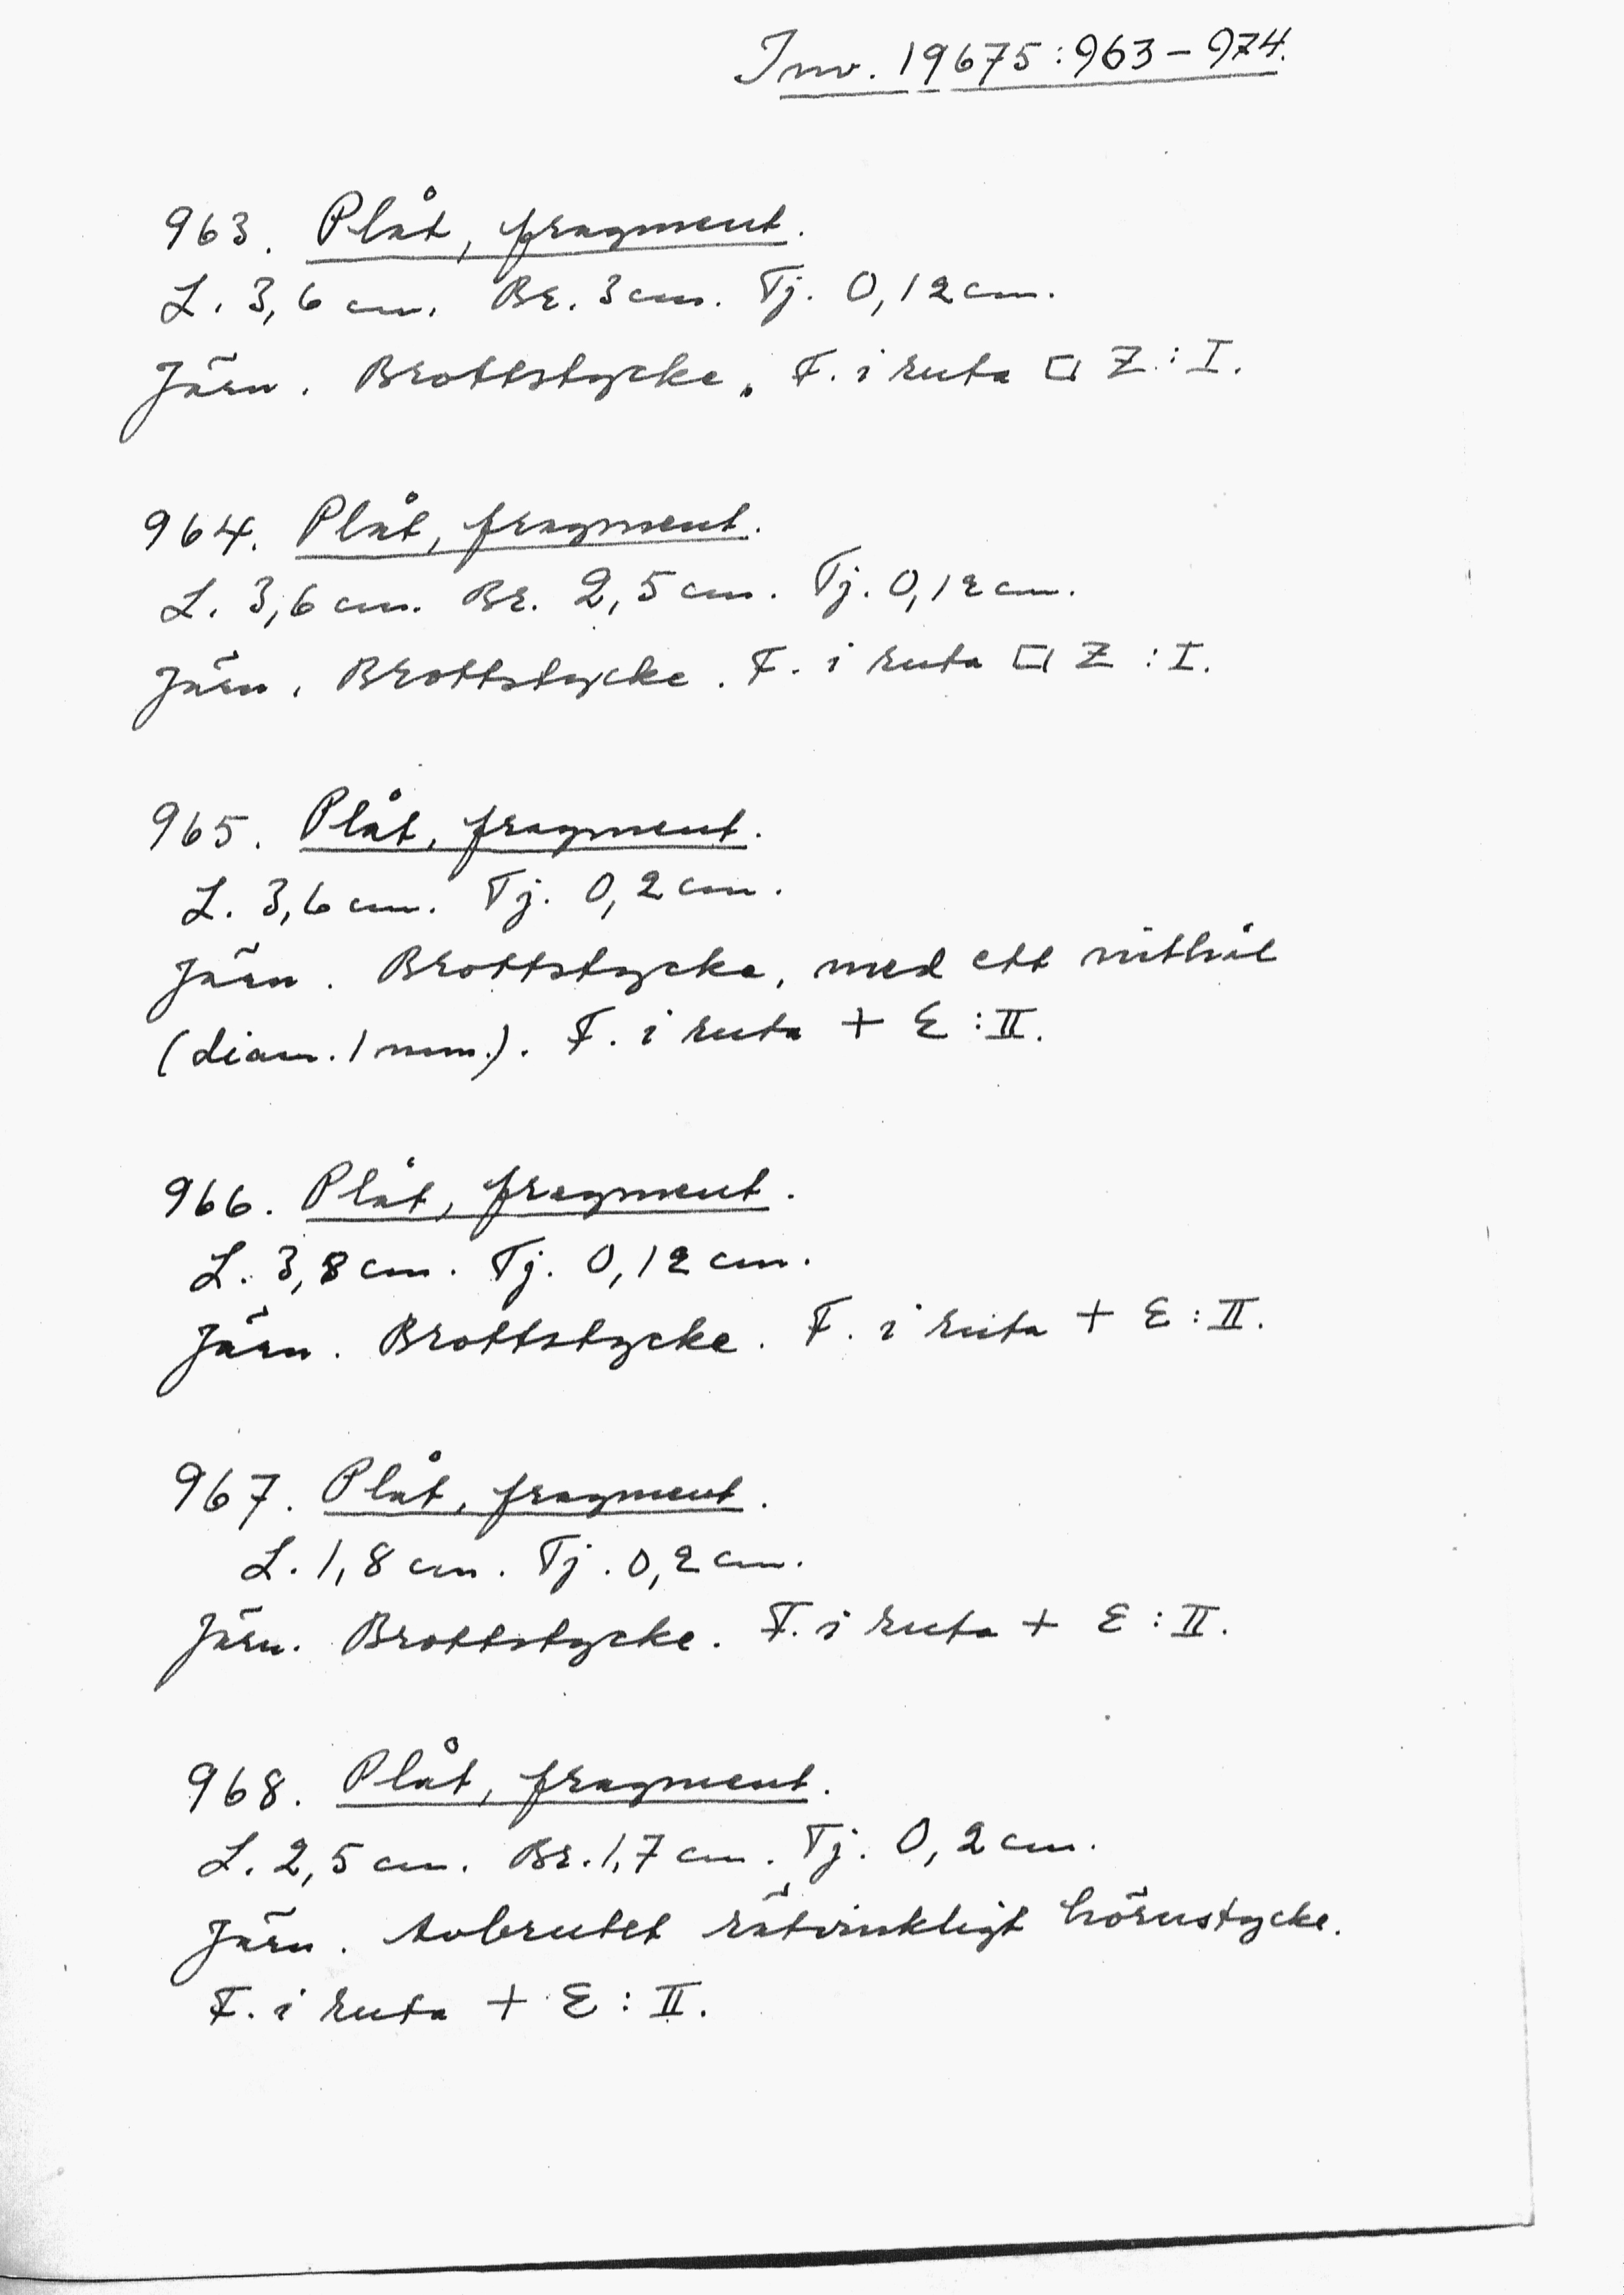 Inv. 19675:963-974.
963. Plåt, fragment.
L. 3,6 cm. Br. 3 cm. Tj. 0,12 cm.
Järn. Brottstycke. F. i ruta □ Z : I.
964. Plåt, fragment.
L. 3,6 cm. Br. 2,5 cm. Tj. 0,12 cm.
Järn. Brottstycke. F. i ruta □ Z : I.
965. Plåt, fragment.
L. 3,6 cm. Tj. 0,2 cm.
Järn. Brottstycke, med ett nithål
(diam. 1 mm.). F. i ruta + E : II.
966. Plåt, fragment.
L. 3,8 cm. Tj. 0,12 cm.
Järn. Brottstycke. F. i ruta + E : II.
967. Plåt, fragment.
L. 1,8 cm. Tj. 0,2 cm.
Järn. Brottstycke. F. i ruta + E : II.
968. Plåt, fragment.
L. 2,5 cm. Br. 1,7 cm. Tj. 0,2 cm.
Järn. Avbrutet rätvinkligt hörnstycke.
F. i ruta + E : II.